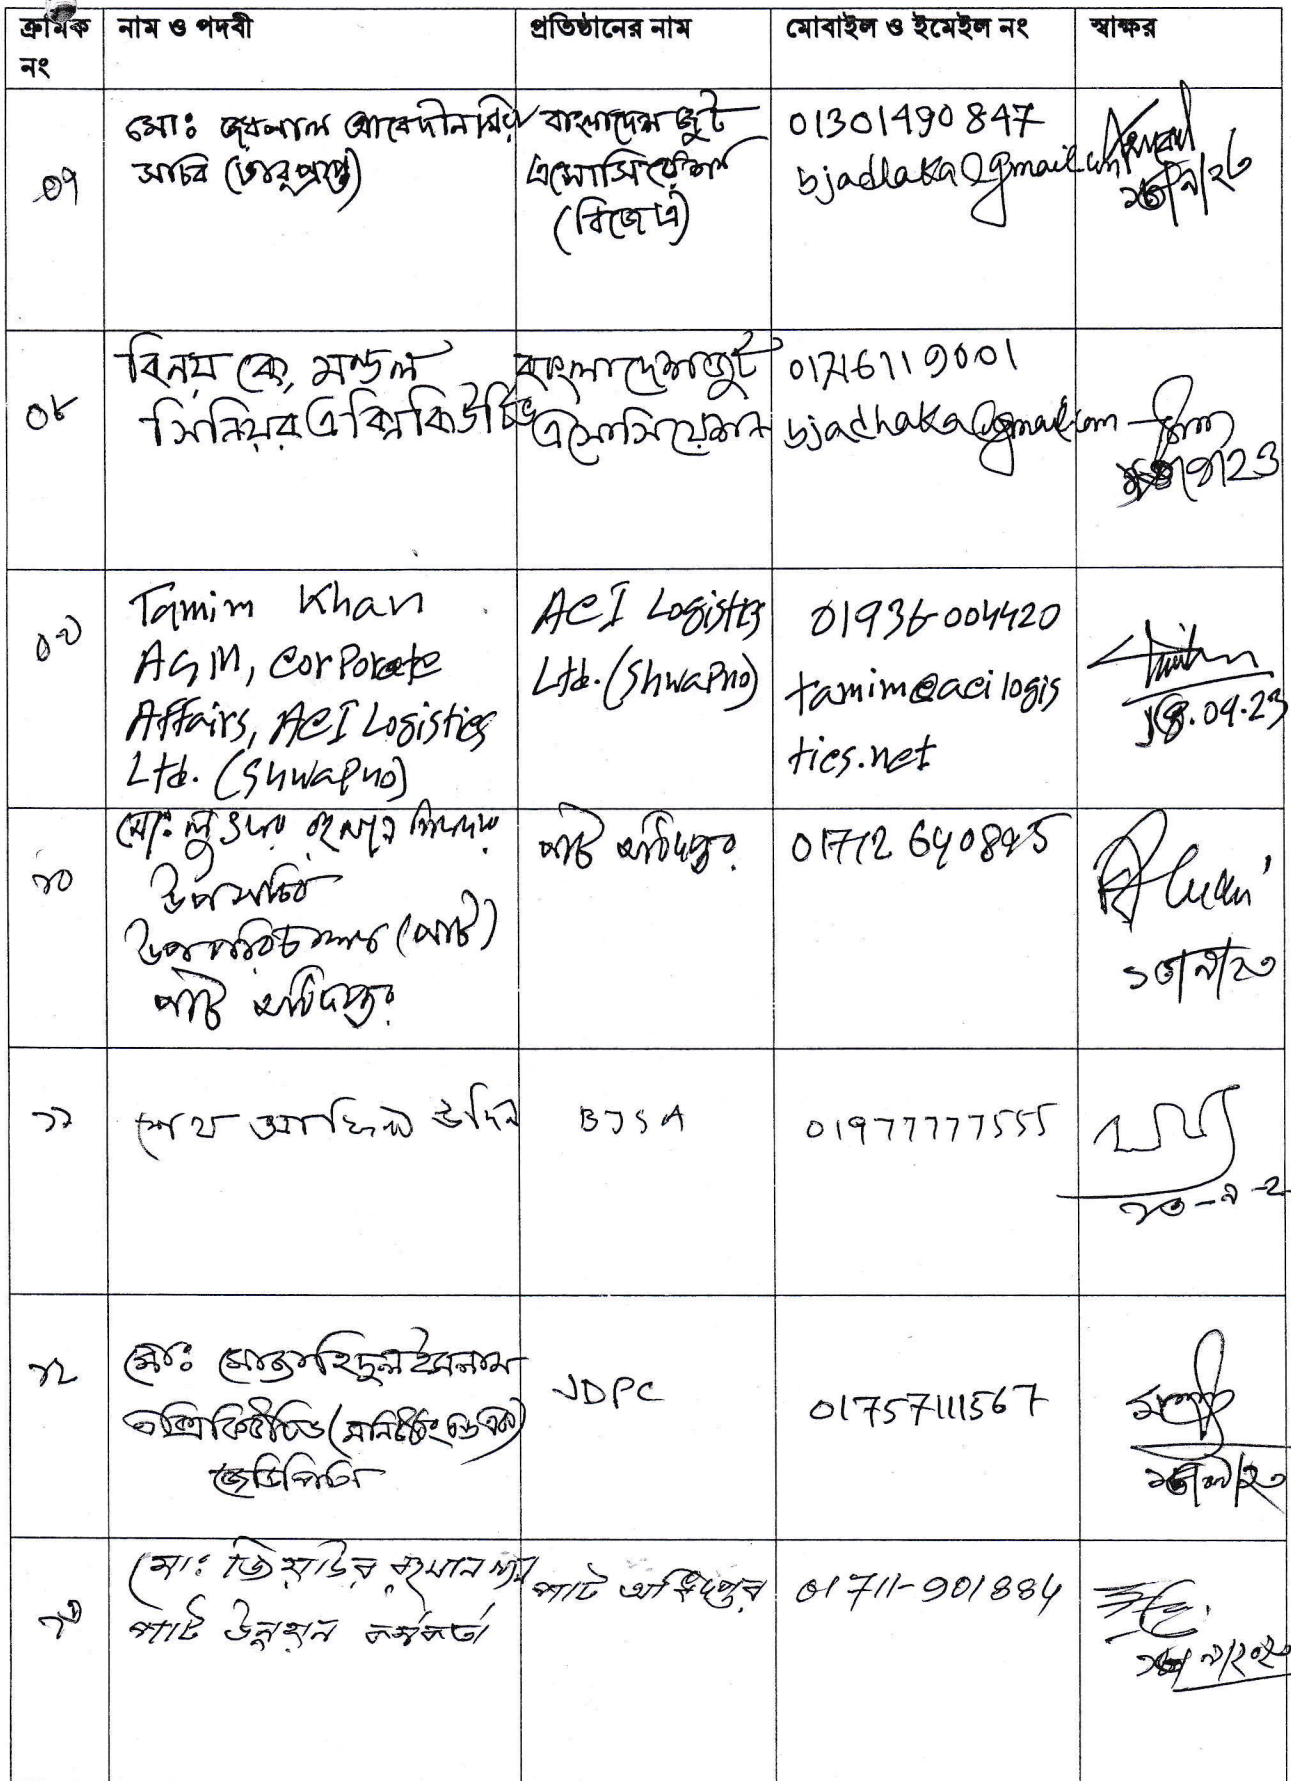 ক্রমিক নং
নাম ও পদবী
প্রতিষ্ঠানের নাম
মোবাইল ও ইমেইল নং
স্বাক্ষর
০৭
মোঃ আবেদীন
সচিব (ভারপ্রাপ্ত)
বাংলাদেশ জুট
এসোসিয়েশন
(বিজেএ)
01301490847
bjadhaka@gmail.com
০৮
বিনয় কে, মন্ডল
সিনিয়র এক্সিকিউটিভ
বাংলাদেশ জুট
এসোসিয়েশন
01716119001
bjadhaka@gmail.com
০৯
Tamim Khan
AGM, Corporate
Affairs, ACI Logistics
Ltd. (Shwapno)
ACI Logistics
Ltd. (Shwapno)
01936-004420
tamim@acilogis
tics.net
18.09.23
১০
মোঃ রহমান
উপসচিব
উপপরিচালক (পাট)
পাট অধিদপ্তর
পাট অধিদপ্তর
01712640895
১১
শেখ উদ্দিন
BJSA
01977777555
১২
মোঃ মোজাহিদুল ইসলাম
এক্সিকিউটিভ
জেডিপিসি
JDPC
01757111567
১৩
মোঃ জিয়াউর রহমান
পাট উন্নয়ন কর্মকর্তা
পাট অধিদপ্তর
01711-901884